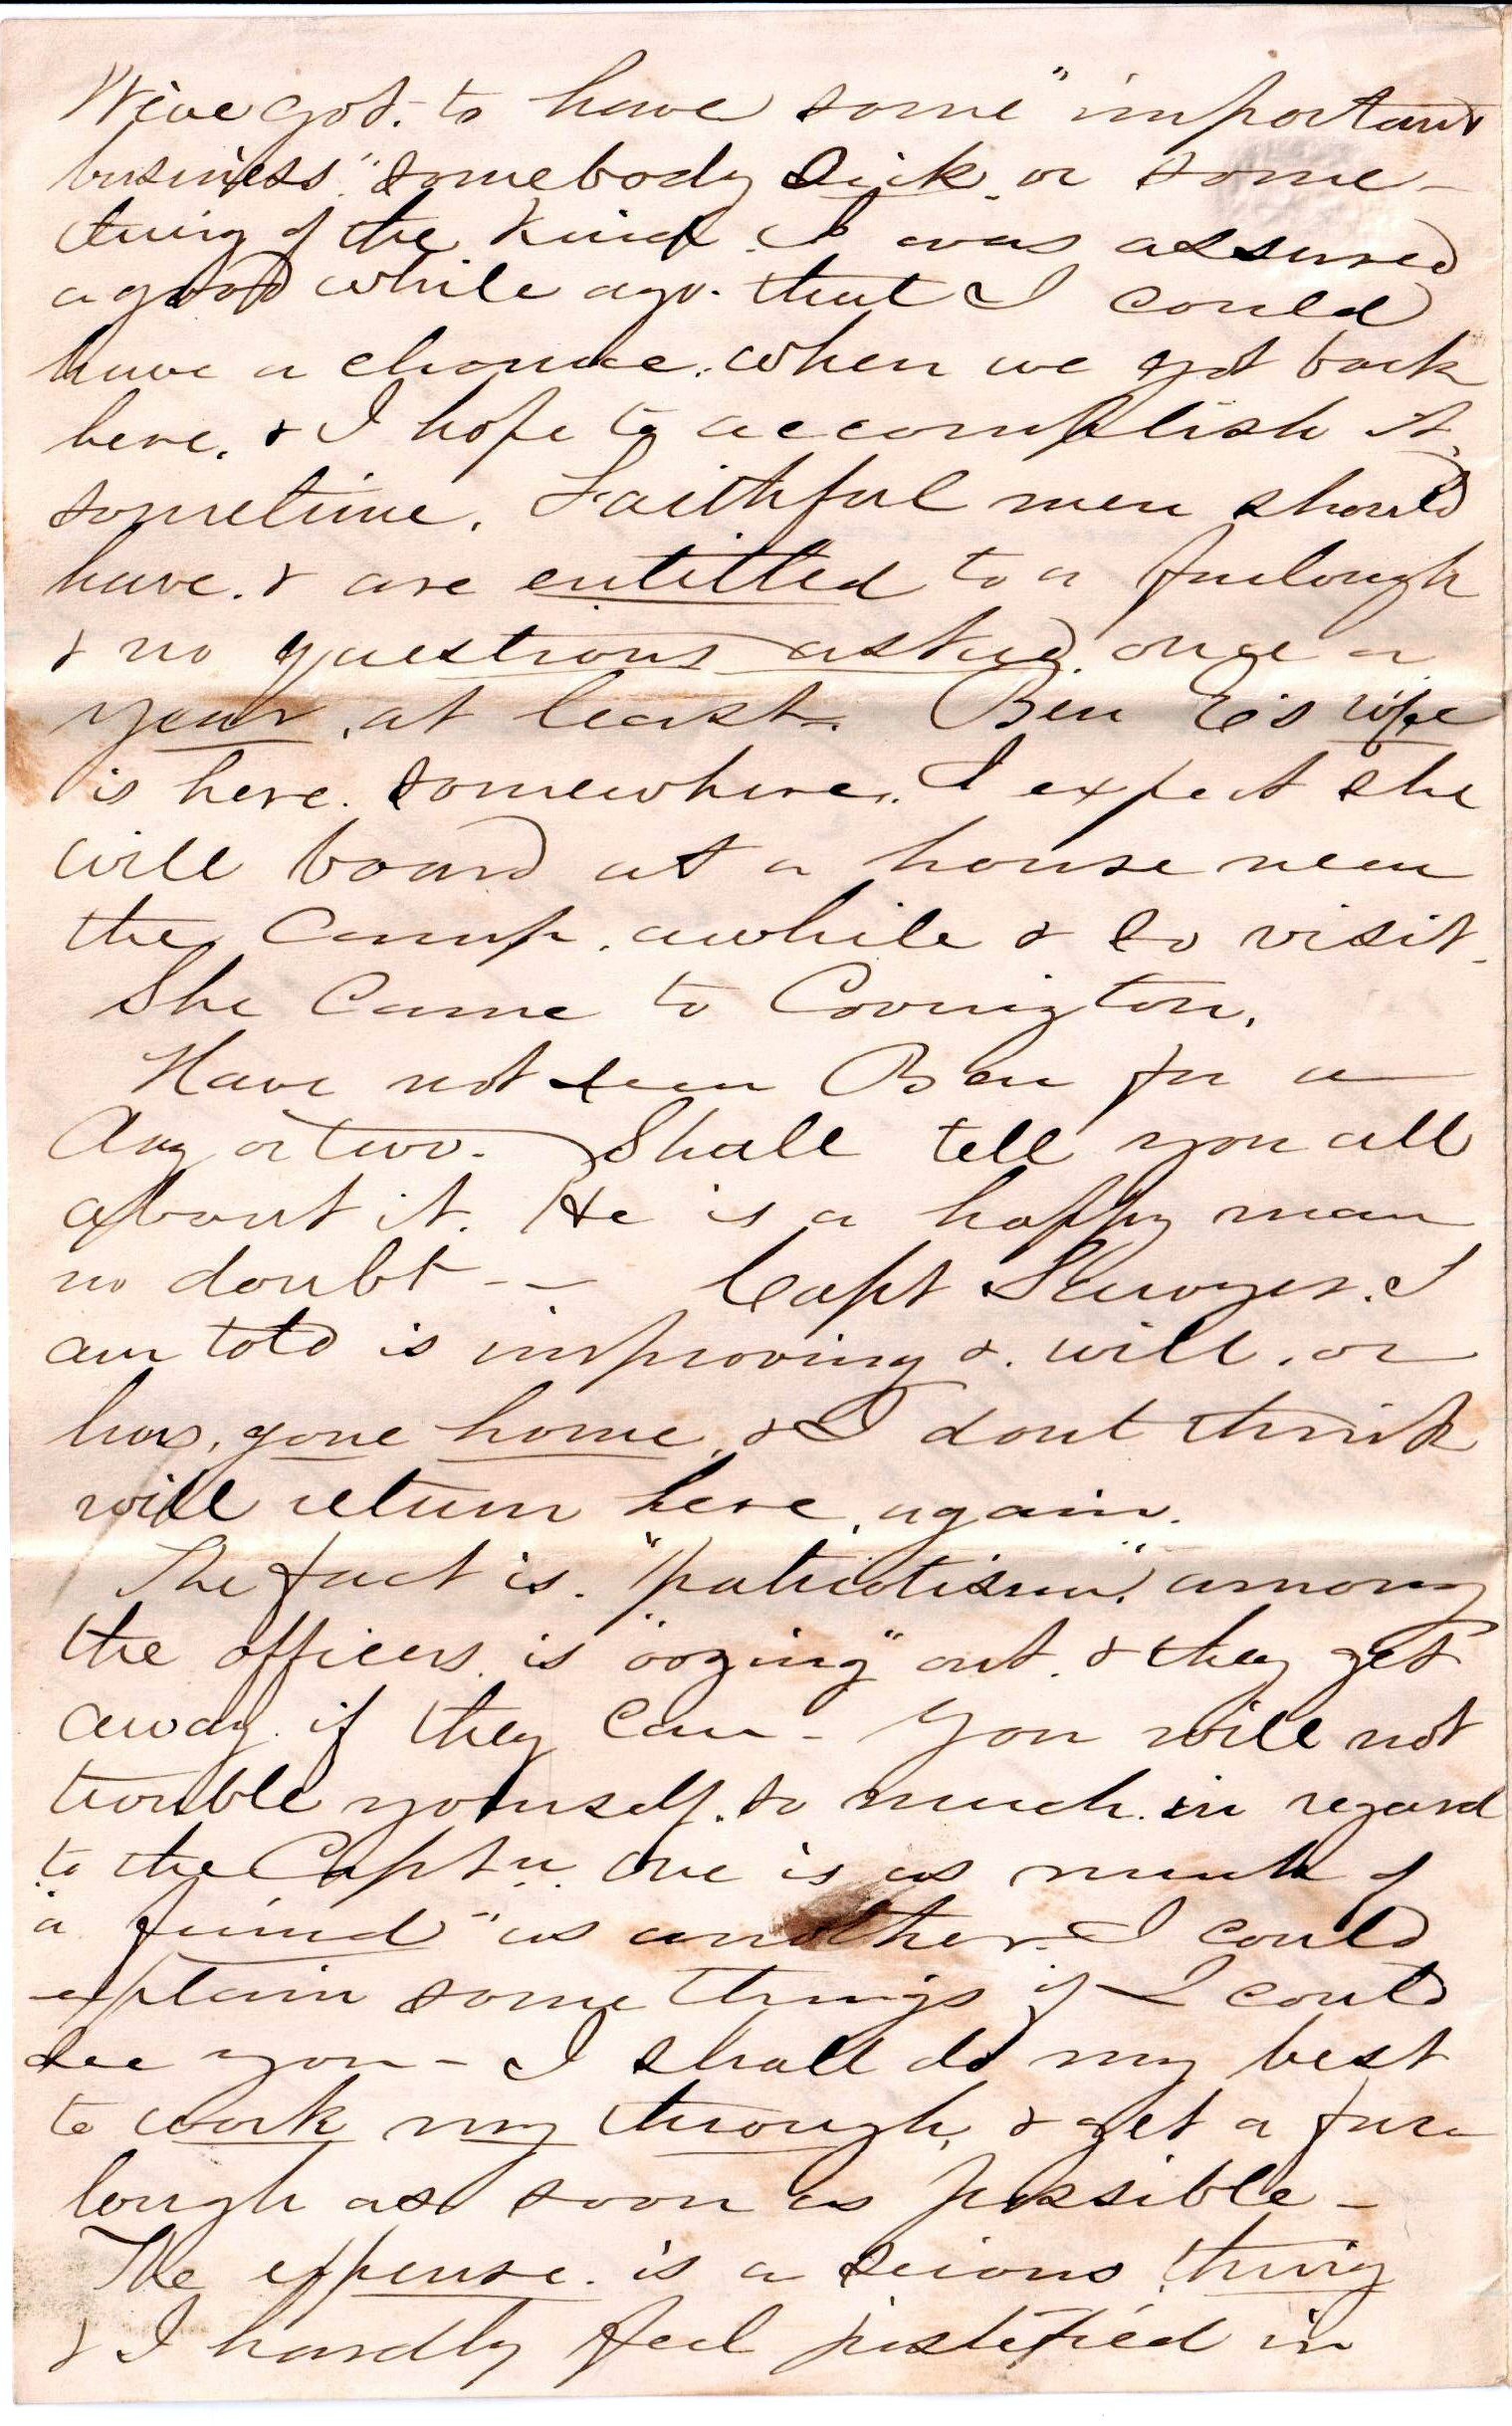 We've got. to have some "important
business" somebody sick. or some-
thing of the kind. I was assured
a good while ago. that I could
have a chance. when we got back
here. & I hope to accomplish it
sometime. Faithful men should
have. & are entitled to a furlough
& no questions asked. once a
year, at least. Ben E's wife
is here. somewhere. I expect she
will board at a house near
the Camp. awhile & so visit.
She Came to Covington.
Have not seen Ben for a
day or two. Shall tell you all
about it. He is a happy man
no doubt -- Capt Sawyer. I
am told is improving &. will, or
has, gone home, & I dont think
will return here, again.
The fact is. "patriotism". among
the officers. is "oozing" out. & they get
away. if they can - You will not
trouble yourself. so much. in regard
to the Capt. One is as much of
"a friend" as another. I could
explain some things if I could
see you - I shall do my best
to work my through, & get a fur-
lough as soon as possible -
The expense. is a serious thing
& I hardly feel justified in